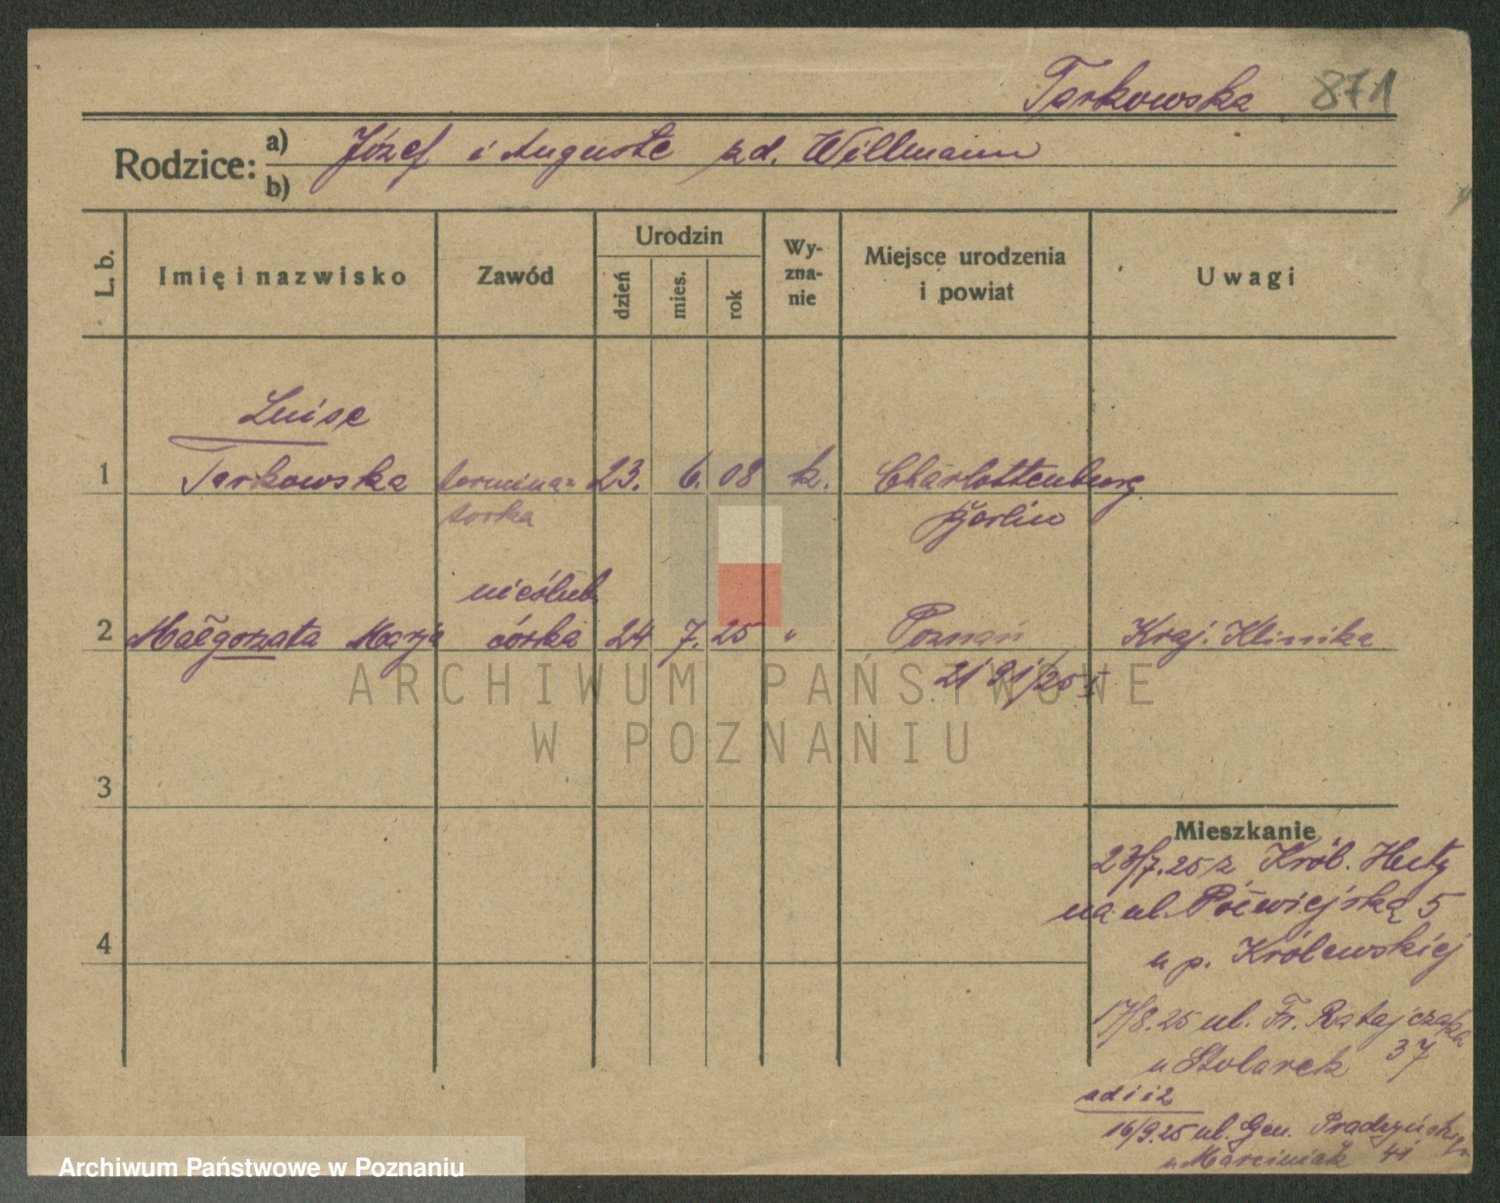 Tarkowska 871
Rodzice: a) Józef i Auguste zd. Willmann
b)
L. b. Imię i nazwisko Zawód Urodzin dzień mies. rok Wy-zna-nie Miejsce urodzenia i powiat Uwagi
Luise
1 Tarkowska termina- 23. 6. 08 k. Charlottenburg
torka Berlin
nieślub.
2 Małgorzata Marja córka 24 7. 25 " Poznań Kraj. Klinika
ARCHIWUM PAŃSTWOWE
W POZNANIU
3
Mieszkanie
23/7.25 z Król. Huty
na ul. Półwiejską 5
4
u p. Królewskiej
17/8.25 ul. Fr. Ratajczaka
u Stolarek 37
ad 1 i 2
16/9.25 ul. Gen. Prądzyńskiego
u Marciniak 41
Archiwum Państwowe w Poznaniu